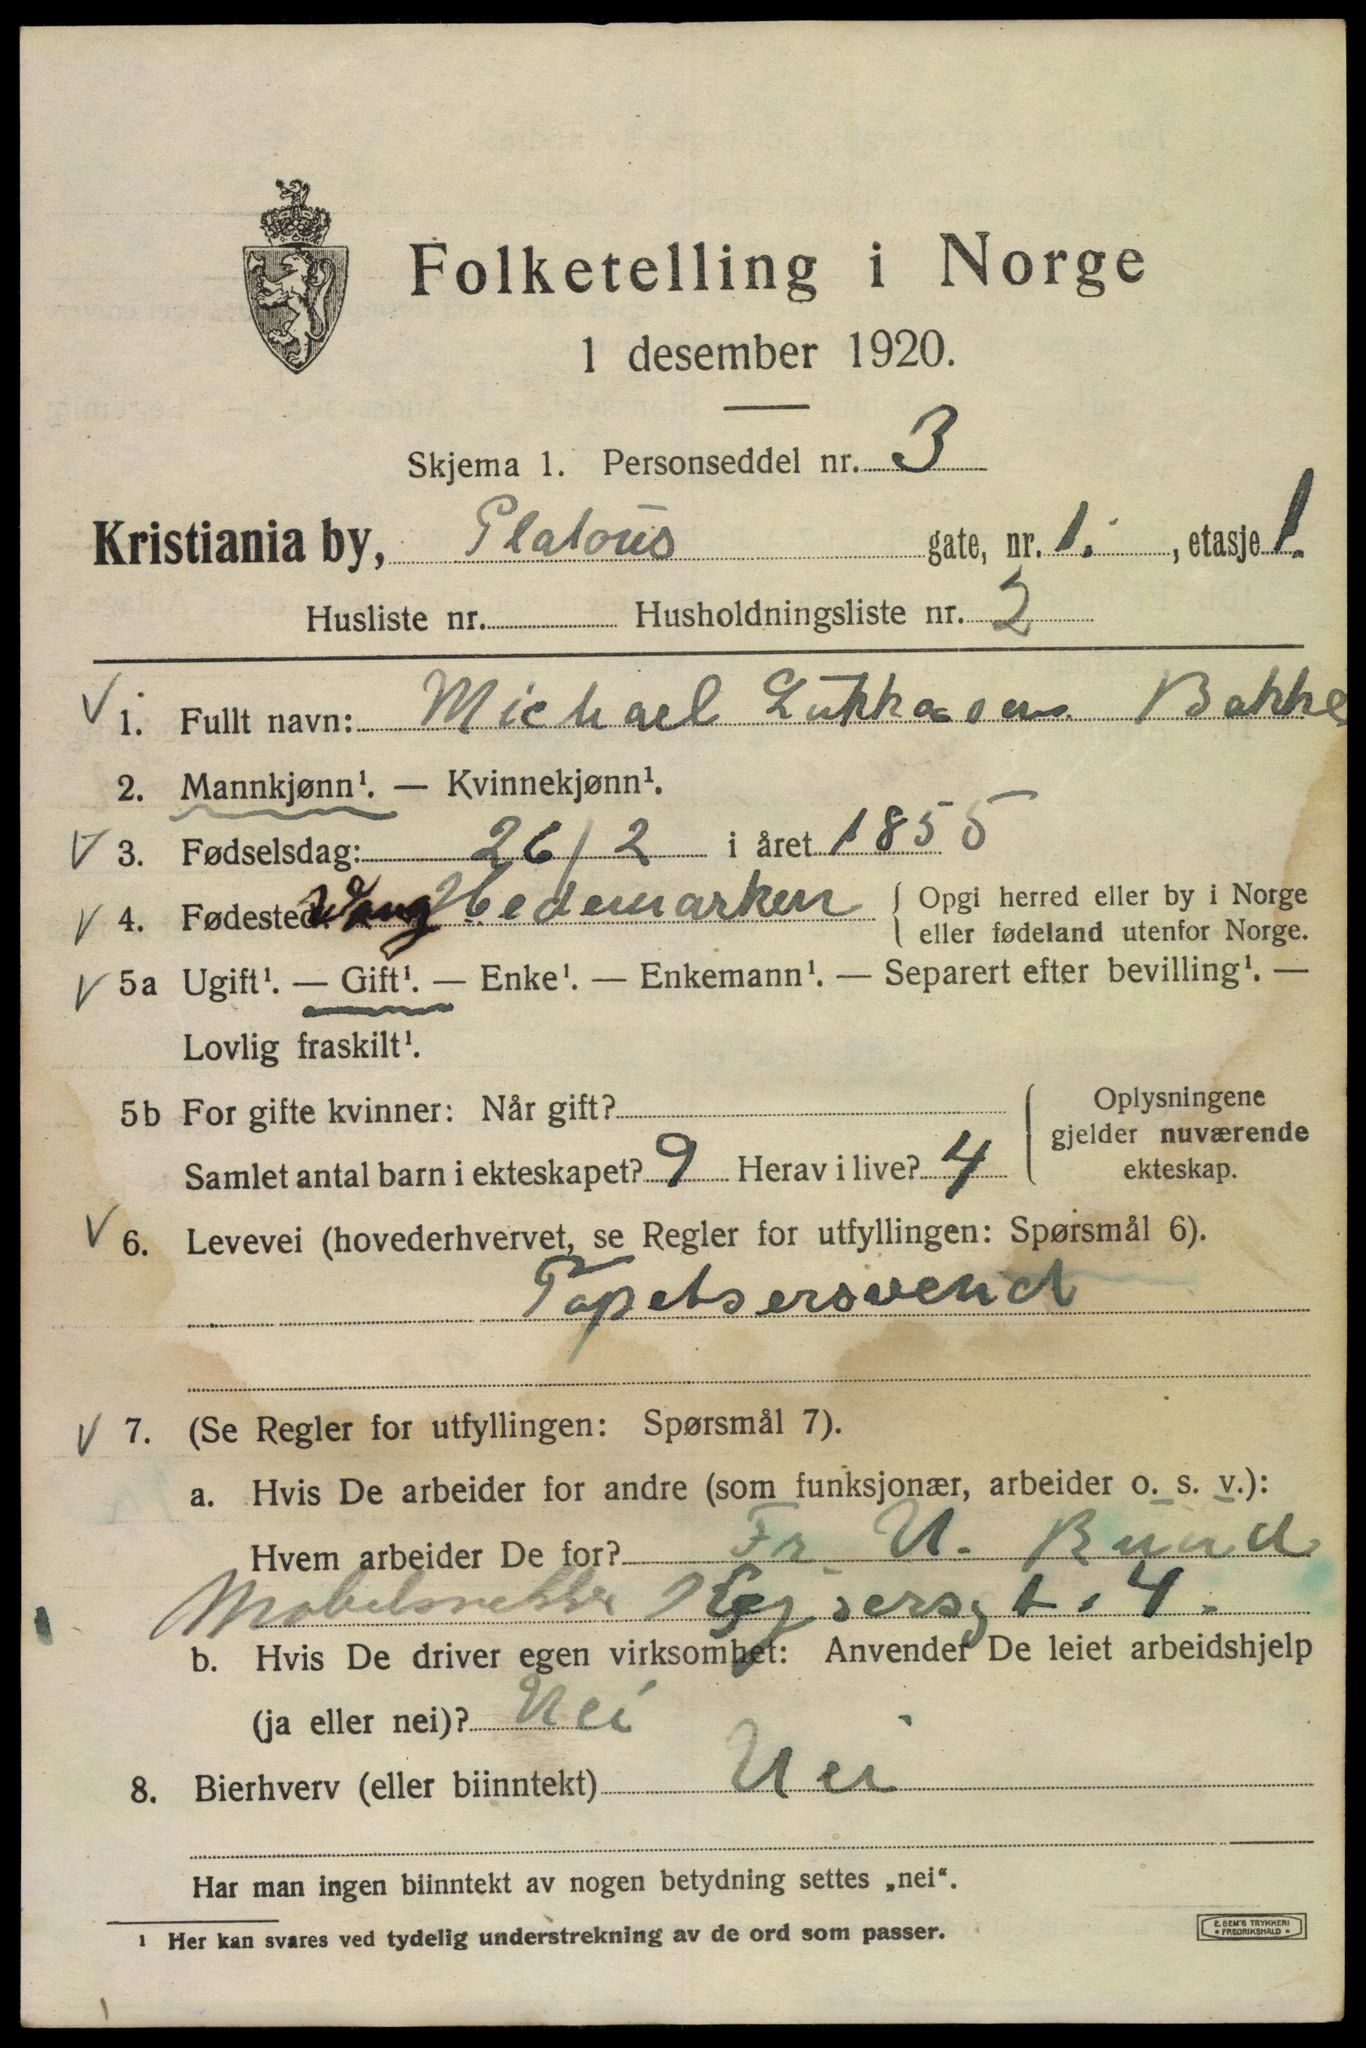 Folketelling i Norge
1 desember 1920.
Skjema 1. Personseddel nr. 3
Kristiania by, Platous gate, nr. 1. , etasje 1.
Husliste nr. Husholdningsliste nr. 2
1. Fullt navn: Michael Lukkasen Bakke
2. Mannkjønn¹. — Kvinnekjønn¹.
3. Fødselsdag: 26/2 i året 1855
4. Fødested: Vang Hedemarken { Opgi herred eller by i Norge
eller fødeland utenfor Norge.
5a Ugift¹. — Gift¹. — Enke¹. — Enkemann¹. — Separert efter bevilling¹. —
Lovlig fraskilt¹.
5b For gifte kvinner: Når gift?
Samlet antal barn i ekteskapet? 9 Herav i live? 4
Oplysningene
gjelder nuværende
ekteskap.
6. Levevei (hovederhvervet, se Regler for utfyllingen: Spørsmål 6).
Tapetsersvend
7. (Se Regler for utfyllingen: Spørsmål 7).
a. Hvis De arbeider for andre (som funksjonær, arbeider o. s. v.):
Hvem arbeider De for? Fr. U. Bund
Keysersgt. 4.
b. Hvis De driver egen virksomhet: Anvender De leiet arbeidshjelp
(ja eller nei)? Nei
8. Bierhverv (eller biinntekt) Nei
Har man ingen biinntekt av nogen betydning settes „nei“.
¹ Her kan svares ved tydelig understrekning av de ord som passer.
E. SEM'S TRYKKERI
• FREDRIKSHALD •